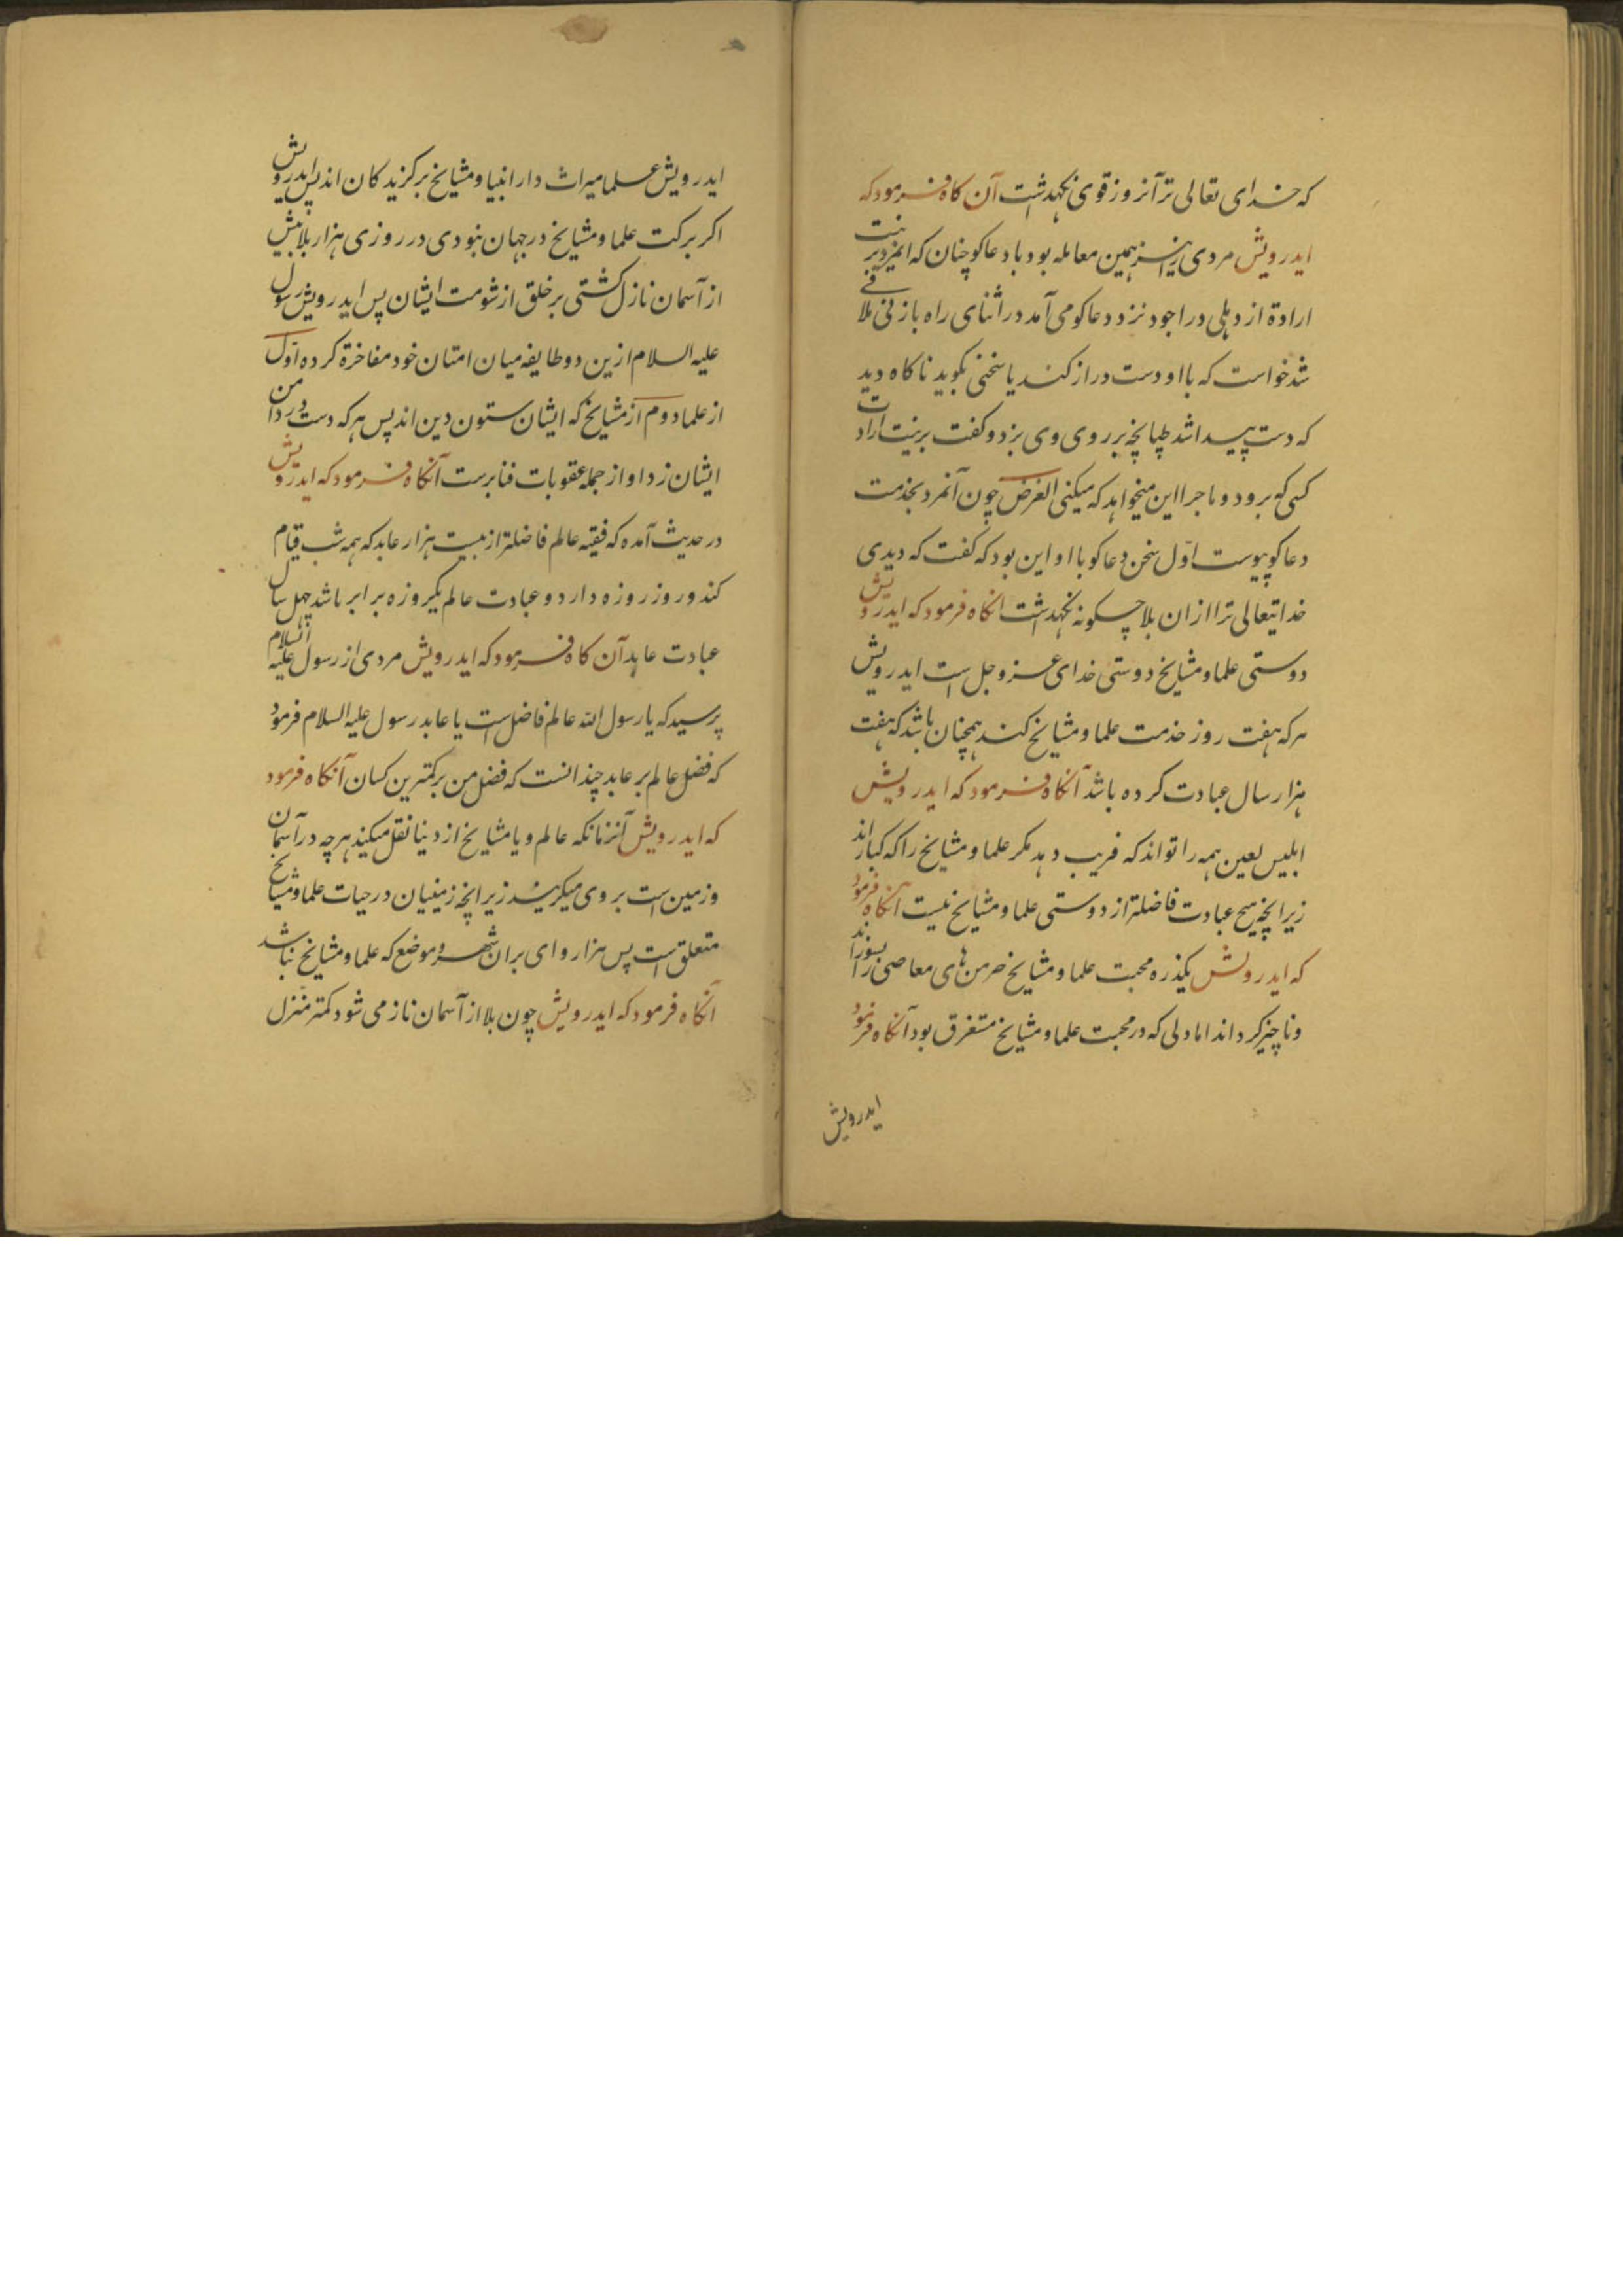 که خدای تعالی ترا آنروز قوی نکهداشت آن کاه فرمود که
ایدرویش مردی را نیز همین معامله بود با دعاکو چنان که انمرد بر نیت
ارادة از دهلی در اجودن نزد دعاکو می آمد در اثنای راه با زنی ملاقی
شد خواست که با او دست دراز کند یا سخنی بکوید ناکاه دید
که دست پیدا شد طپانچه بر روی وی بزد و کفت بر نیت ارادت
کسی که برود و ماجرا این میخواهد که میکنی الغرض چون آنمرد بخدمت
دعاکو پیوست اول سخن دعاکو با او این بود که کفت که دیدی
خدایتعالی ترا از ان بلا چکونه نکهداشت انکاه فرمود که ایدرویش
دوستی علما و مشایخ دوستی خدای عز و جل است ایدرویش
هر که هفت روز خدمت علما و مشایخ کند همچنان باشد که هفت
هزار سال عبادت کرده باشد آنکاه فرمود که ایدرویش
ابلیس لعین همه را تواند که فریب دهد مکر علما و مشایخ را که کبارند
زیرانچه هیچ عبادت فاضلتر از دوستی علما و مشایخ نیست آنکاه فرمود
که ایدرویش یکذره محبت علما و مشایخ خرمن های معاصی را بسوزاند
و ناچیز کرداند اما دلی که در محبت علما و مشایخ مستغرق بود آنکاه فرمود
ایدرویش
ایدرویش علما میراث دار انبیا و مشایخ برکزیدکان اند پس ایدرویش
اکر برکت علما و مشایخ در جهان نبودی در روزی هزار بلا بیش
از آسمان نازل کشتی بر خلق از شومت ایشان پس ایدرویش رسول
علیه السلام ازین دو طایفه میان امتان خود مفاخرة کرده اول
از علما دوم از مشایخ که ایشان ستون دین اند پس هر که دست در دامن
ایشان زد او از جمله عقوبات فنا برست آنکاه فرمود که ایدرویش
در حدیث آمده که فقیه عالم فاضلتر از بیست هزار عابد که همه شب قیام
کند و روز روزه دارد و عبادت عالم یکروزه برابر باشد چهل سال
عبادت عابد آن کاه فرمود که ایدرویش مردی از رسول علیه السلام
پرسید که یا رسول الله عالم فاضل است یا عابد رسول علیه السلام فرمود
که فضل عالم بر عابد چندانست که فضل من بر کمترین کسان آنکاه فرمود
که ایدرویش آنزمانکه عالم و یا مشایخ از دنیا نقل میکند هر چه در آسمان
و زمین است بر وی میکریند زیرانچه زمینیان در حیات علما و مشایخ
متعلق است پس هزار وای بران شهر و موضع که علما و مشایخ نباشد
آنکاه فرمود که ایدرویش چون بلا از آسمان ناز می شود کمتر منزل